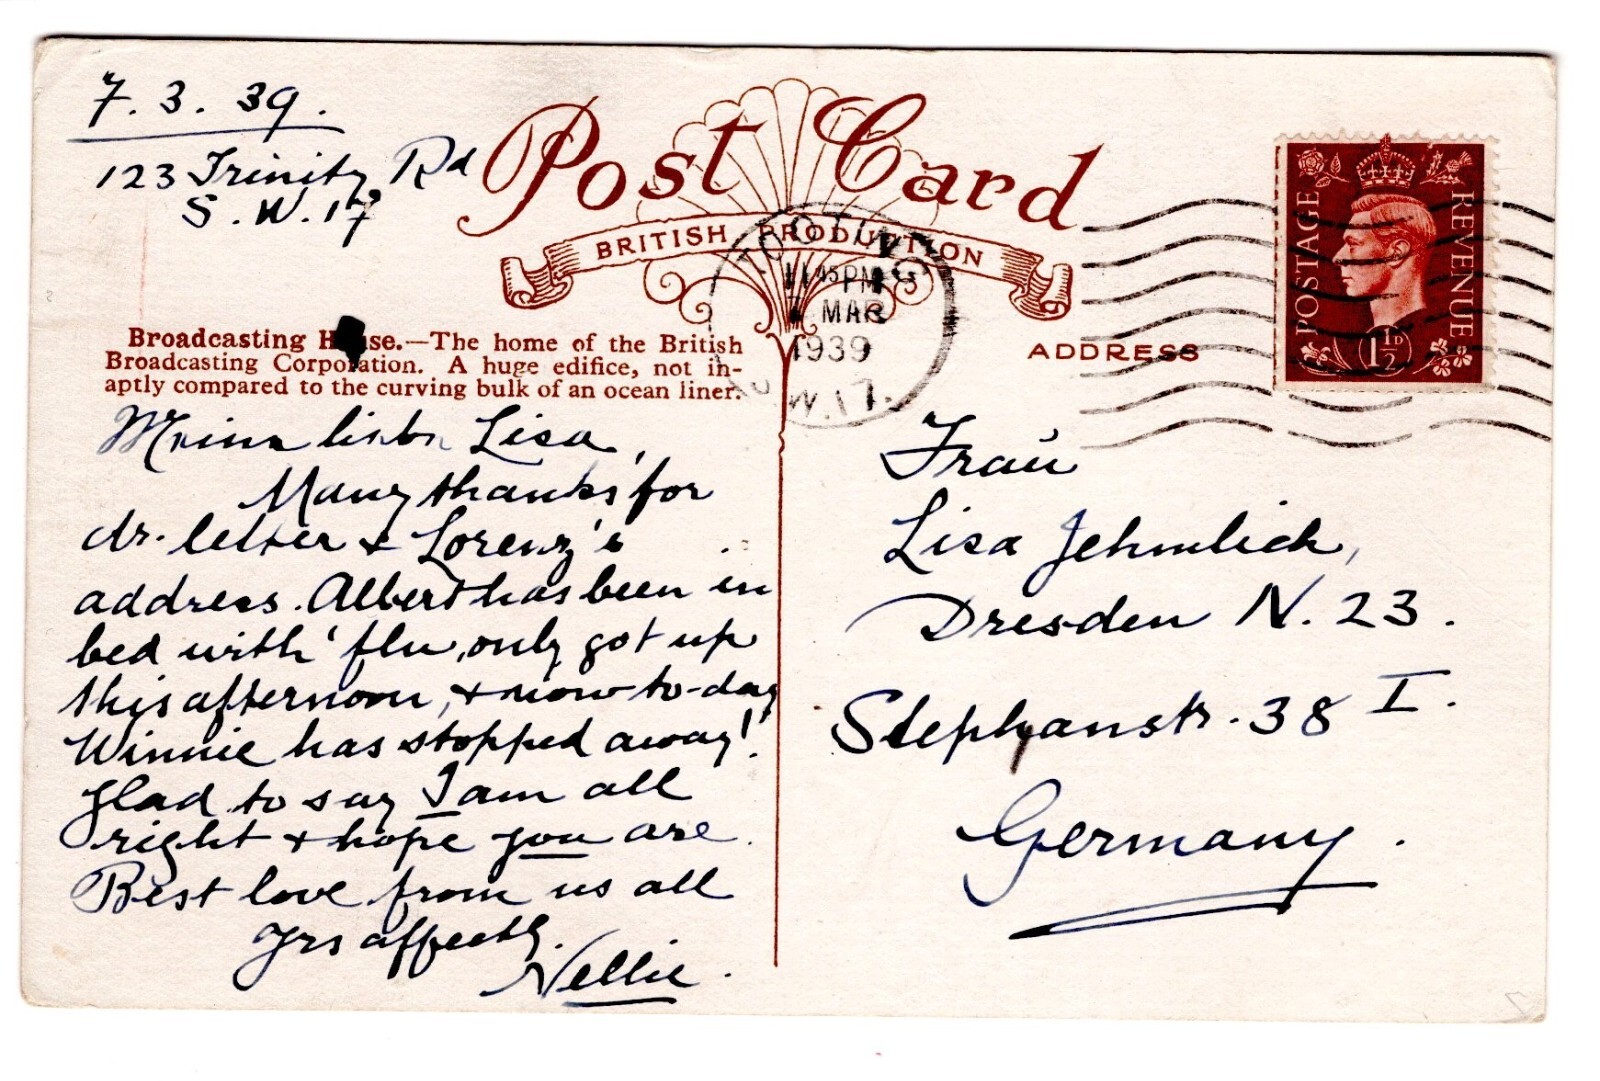 7. 3. 39.
123 Trinity Rd
S. W. 17
Post Card
BRITISH PRODUCTION
TOOTING
11 45 PM
7 MAR
1939
S.W.17.
POSTAGE
REVENUE
1½D
Broadcasting House.—The home of the British
Broadcasting Corporation. A huge edifice, not in-
aptly compared to the curving bulk of an ocean liner.
ADDRESS
Meine liebe Lisa,
Many thanks for
dr. letter & Lorenz's
address. Albert has been in
bed with 'flu, only got up
this afternoon, & now to-day
Winnie has stopped away!
Glad to say I am all
right & hope you are.
Best love from us all
Yrs affectly.
Nellie.
Frau
Lisa Jehmlich,
Dresden N. 23.
Stephanstr. 38 I.
Germany.